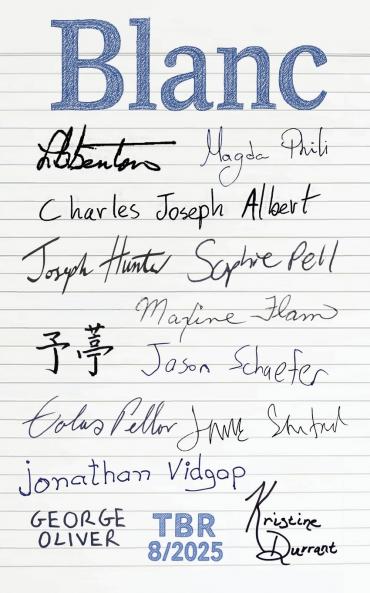 Blanc
Magda Phili
Charles Joseph Albert
Joseph Hunter Sophie Pell
Maxine Flam
予葶 Jason Schaefer
Pellor
Jonathan Vidgop
GEORGE
OLIVER
TBR
8/2025
Kristine
Durrant